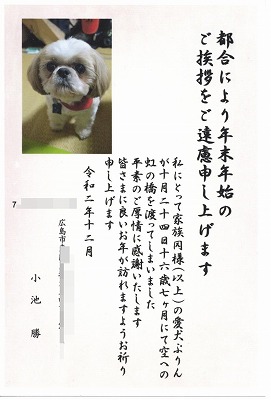 都合により年末年始の
ご挨拶をご遠慮申し上げます
私にとって家族同様(以上)の愛犬ぷりん
が十月二十四日十六歳七ヶ月にて空への
虹の橋を渡ってしまいました
平素のご厚情に感謝いたします
皆さまに良いお年が訪れますようお祈り
申し上げます
令和二年十二月
7
広島市
小池 勝